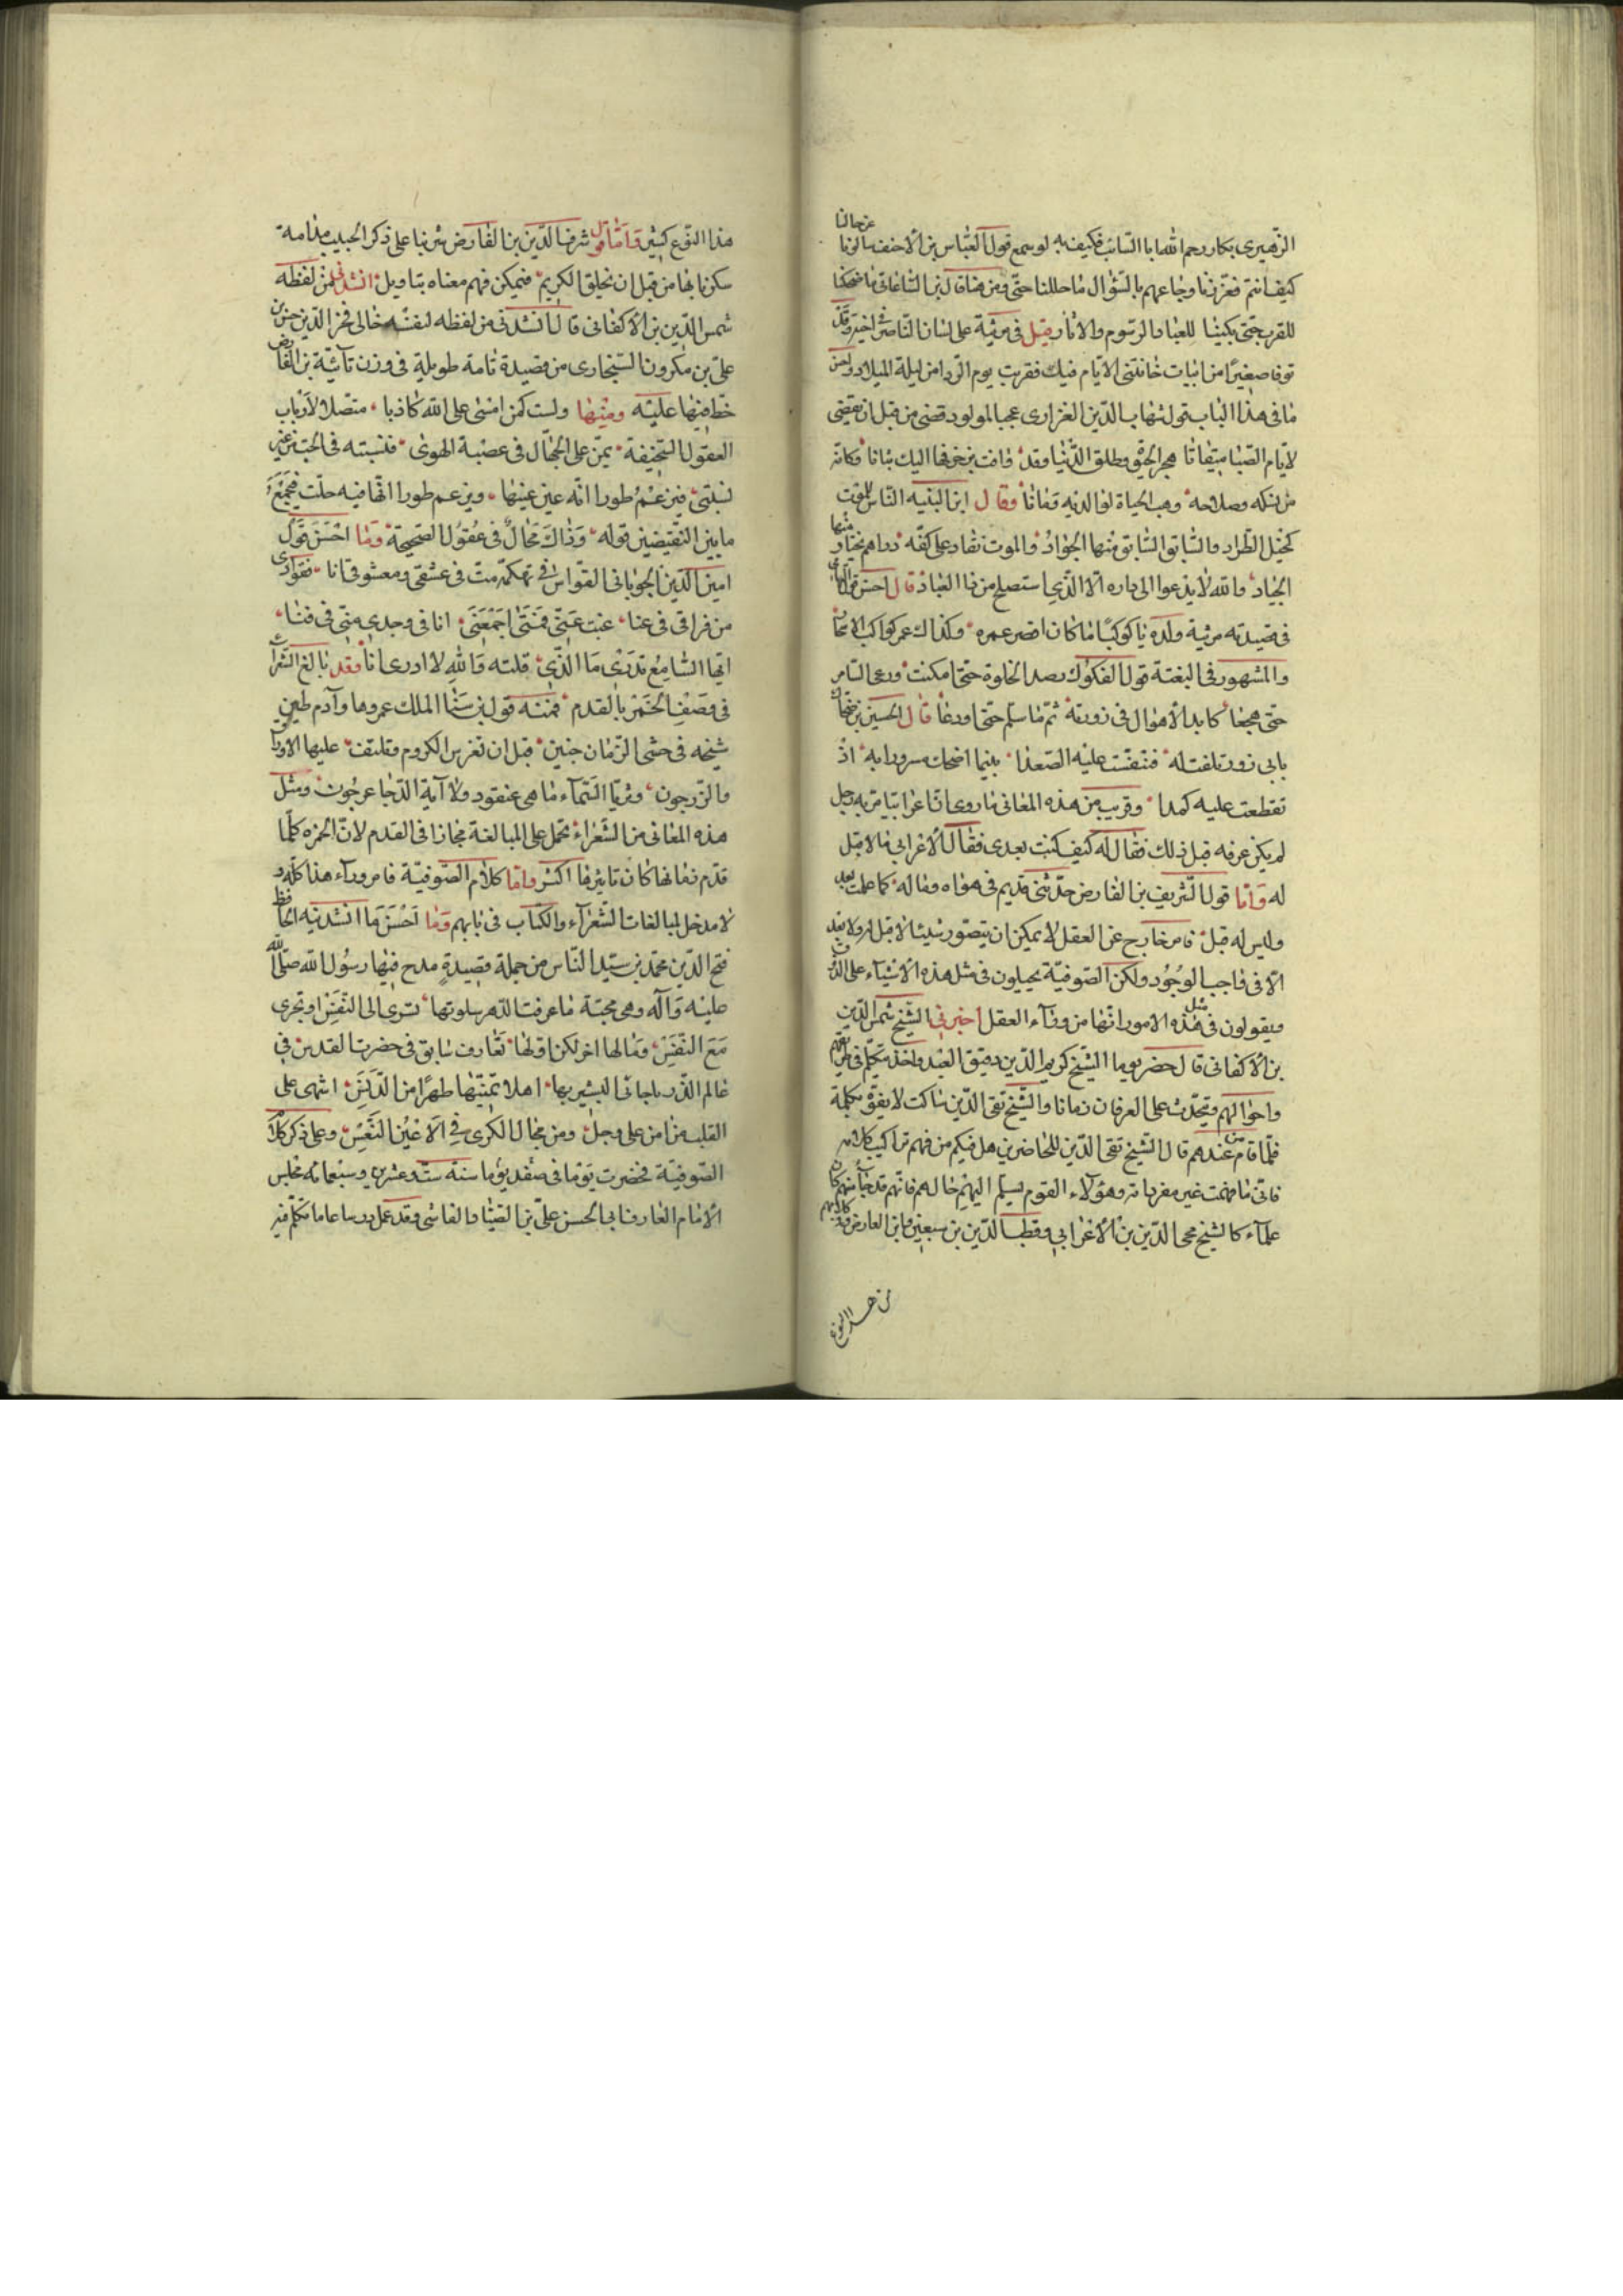 الزهيري بكار رحم الله ابا السائب فكيف به لو سمع قول العباس بن الاحنف سالونا عن حالنا
كيف انتم فقرنا وداعهم بالسؤال ما حللنا حتى ومن هنا قال ابن الساعاتي ما ضحكنا
للقرب حتى بكينا للبعاد والرسوم والاثار قيل في مرثية على لسان الناصر في اخيه وقد
توفا صغيرا من ابيات خانتني الايام فيك فقربت يوم الردا من ليلة الميلاد واحسن
ما في هذا الباب قول شهاب الدين العزازي عجبا لمولود قضى من قبل ان يقضي
لايام الصبا ميقاتا هجر الحيوة وطلق الدنيا وقد وافت بزخرفها اليك بتاتا فكانه
من نسكه وصلاحه وهب الحياة لوالديه وماتا وقال ابن النبيه الناس للموت
كخيل الطراد والسابق السابق منها الجواد والموت نقاد على كفه دراهم يختار منها
الجياد والله لا يدعوا الى داره الا الذي استصلح من ذا العباد قال احسن
في قصيدته مرثية ولده يا كوكبا ما كان اقصر عمره وكذاك عمر كواكب الاسحار
والمشهور في البغتة قول العكوك رصد الخلوة حتى امكنت ورعى السامر
حتى هجعا كابد الاهوال في زورته ثم ما سلم حتى ودعا قال الحسين بن ضحاك
بابي زور تلفت له فتنفست عليه الصعدا بينما اضحك مسرورا به اذ
تقطعت عليه كمدا وقريب من هذه المعاني ما روى ان اعرابيا مر به رجل
لم يكن عرفه قبل ذلك فقال له كيف كنت بعدي فقال الاعرابي ما لا قبل
له واما قول الشريف بن الفارض حدثني قديم في هواه وماله كما علمت بعد
وليس له قبل فامر خارج عن العقل لا يمكن ان يتصور شيئا لا قبل له ولا بعد
الا في واجب الوجود ولكن الصوفية يحيلون في مثل هذه الاشياء على الذوق
ويقولون في مثل هذه الامور انها من وراء العقل اخبرني الشيخ شمس الدين
بن الاكفاني قال حضر يوما الشيخ كريم الدين دقيق العيد واخذ يتكلم في طريقهم
واحوالهم ويتحدث على العرفان زمانا والشيخ تقي الدين ساكت لا يفوه بكلمة
فلما قام من عندهم قال الشيخ تقي الدين للحاضرين هل فيكم من فهم تراكيب كلامه
فاني ما فهمت غير مفرداته وهؤلاء القوم يسلم اليهم حالهم فانهم قد جا منهم
علماء كالشيخ محي الدين بن الاعرابي وقطب الدين بن سبعين وابن الفارض وفي كلامهم
من هذا النوع
هذا النوع كثير واما قول شرف الدين بن الفارض شربنا على ذكر الحبيب مدامة
سكرنا بها من قبل ان يخلق الكريم فيمكن فهم معناه بتاويل انشدني من لفظه
شمس الدين بن الاكفاني قال انشدني من لفظه لنفسه خالي فخر الدين حسن
علي بن مكرون السنجاري من قصيدة تامة طويلة في وزن تائية بن الفارض
خط فيها عليه ومنها ولست كمن امسى على الله كاذبا متصلا لارباب
العقول السخيفة يمن على الجهال في عصبة الهوى فنسبته في الحب من غير
نسبتي فيزعم طورا انه عين عينها ويزعم طورا انها فيه حلت فيجمع
ما بين النقيضين قوله وذاك محال في عقول الصحيحة وما احسن قول
امين الدين الجوباني القواس في تهكمه مت في عشقي ومعشوقي انا ففوادي
من فراقي في عنا غبت عني فمتى اجمعني انا في وجدي مني في فنا
ايها السامع تدري ما الذي قلته والله لا ادري انا وقد بالغ الشعراء
في وصف الخمر بالقدم فمنه قول بن سنا الملك عمروها وآدم طين
شيخه في حشى الزمان جنين قبل ان تغرس الكروم وتلتف عليها الاوراق
والزرجون وثريا السماء ما هي عنقود ولا آية الدجا عرجون ومثل
هذه المعاني من الشعراء تحمل على المبالغة مجازا في القدم لان الخمره كلما
قدم زمانها كان تاثيرها اكثر واما كلام الصوفية فامر وراء هذا كله و
لا مدخل لمبالغات الشعراء والكتاب في بابهم وما احسن ما انشدنيه الحافظ
فتح الدين محمد بن سيد الناس من جملة قصيدة مدح فيها رسول الله صلى الله
عليه وآله وهي محبة ما عرفت الدهر سلوتها تسري الى النفس او تجري
مع النفس ومالها اخر لكن اولها تعارف سابق في حضرت القدس في
عالم الذر ما جاتي البشير بها اهلا بمنيتها طهرا من الدنس اشهى على
القلب من امن على وجل ومن مجال الكرى في الاعين النعس وعلى ذكر كلام
الصوفية فحضرت يوما في صفد يوما سنة ست وعشرين وسبعماته مجلس
الامام العارف ابي الحسن علي بن الصياد الفاسي وقد عمل درسا عاما تكلم فيه